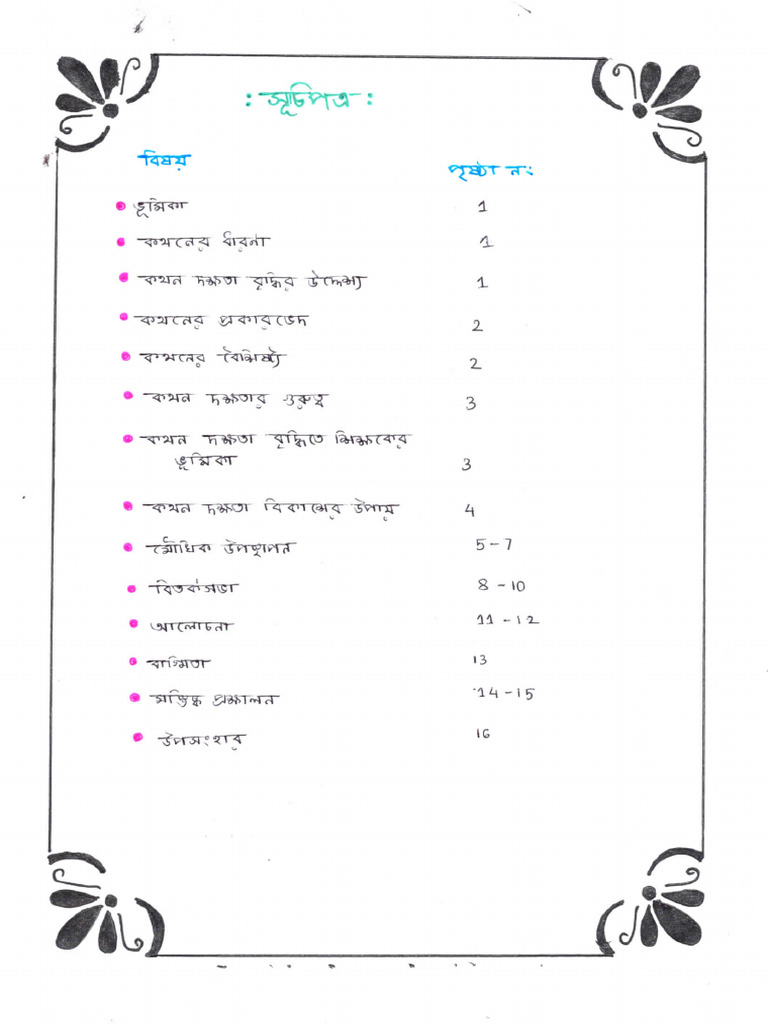 : সূচিপত্র :
বিষয় পৃষ্ঠা নং
ভূমিকা 1
কথনের ধারনা 1
কথন দক্ষতা বৃদ্ধির উদ্দেশ্য 1
কথনের প্রকারভেদ 2
কথনের বৈশিষ্ট্য 2
কথন দক্ষতার গুরুত্ব 3
কথন দক্ষতা বৃদ্ধিতে শিক্ষকের
ভূমিকা 3
কথন দক্ষতা বিকাশের উপায় 4
মৌখিক উপস্থাপন 5-7
বিতর্কসভা 8-10
আলোচনা 11-12
বাগ্মিতা 13
মস্তিষ্ক প্রক্ষালন 14-15
উপসংহার 16